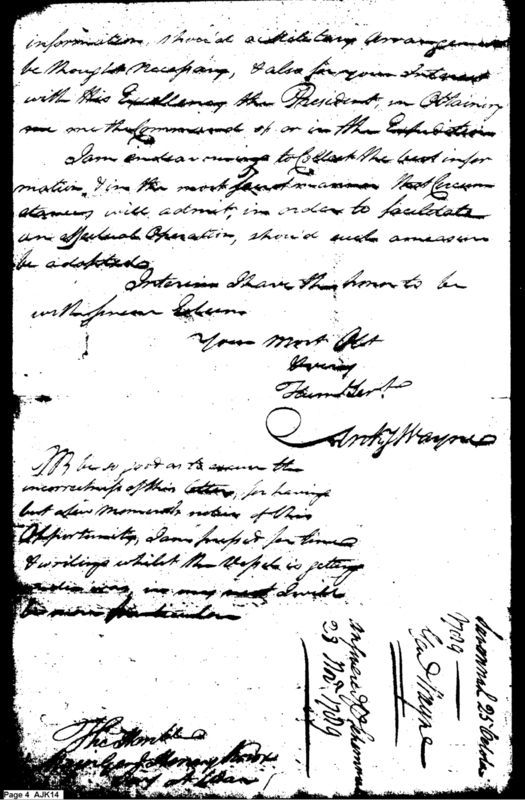 information, shou'd a Military Arrangement
be thought necessary, & also for your Interest
with His Excellency the President, in Obtaining
me the Command of or in the Expedition
I am endeavouring to Collect the best infor
mation, & in the most manner that Circum
stances will admit, in order to facilitate
an effectual Operation, shou'd such a measure
be adopted
Interim I have the honor to be
with sincere Esteem
Your Most Obt
& very
Huml Servt
Anty Wayne
NB be so good as to excuse the
incorrectness of this letter, for having
but a few moments notice of this
Opportunity, I am press'd for time
& writing whilst the Vessel is getting
under way, in my next I will
be more particular
The Honble
Henry Knox
Secy at War
Savannah 25 October
1789
Genl Wayne
answered
29 Novr 1789
Page 4 AJK14